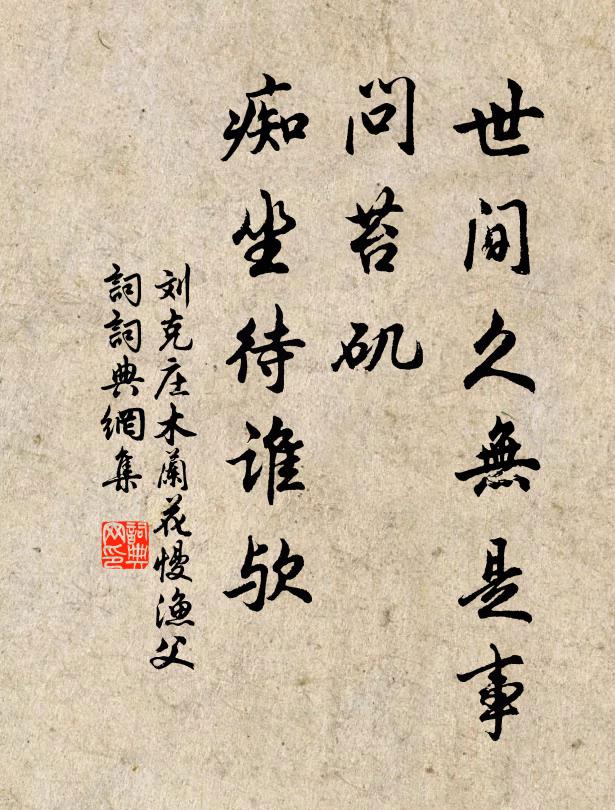 世间久無是事
问苔矶
痴坐待谁欤
刘克庄木蘭花慢渔父
詞詞典網集
詞典网印